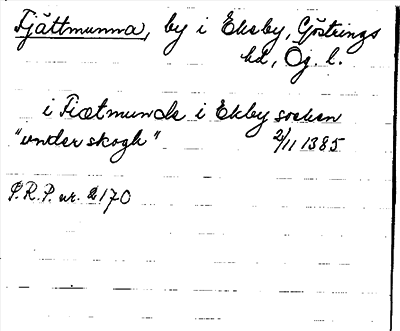 Fjättmunna, by i Ekeby, Göstrings
hd, Ög. l.
i Fiætmunda i Ekby socken
"under skogh" 2/11 1385
P.R.P. nr. 2170